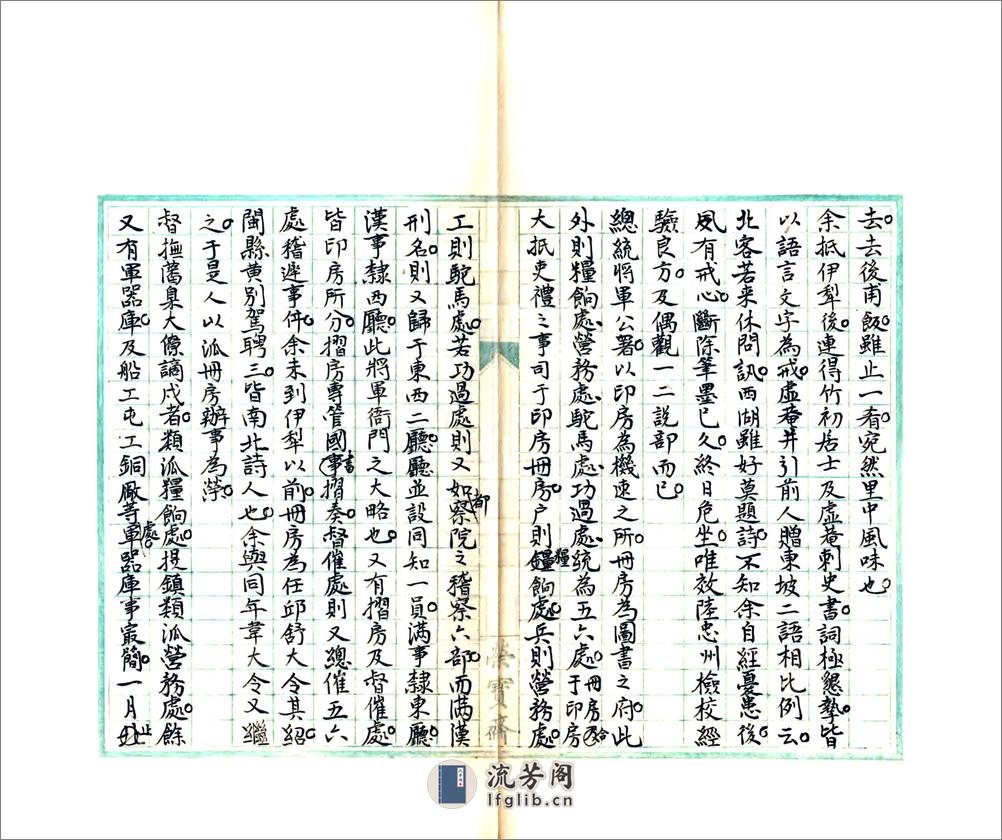 去去後甫飯雖止一肴宛然里中風味也
余抵伊犁後連得竹初居士及虛菴刺史書詞極懇摯皆
以語言文字為戒虛菴并引前人贈東坡二語相比例云
北客若来休問訊西湖雖好莫題詩不知余自經憂患後
夙有戒心斷除筆墨已久終日危坐唯效陸忠州檢校經
驗良方及偶觀一二説部而已
總統將軍公署以印房為機速之所冊房為圖書之府此
外則糧餉處營務處駝馬處功過處統為五六處于印房冊房合
大抵吏禮之事司于印房冊房户則糧餉處兵則營務處
工則駝馬處若功過處則又如都察院之稽察六部而滿漢
刑名則又歸于東西二廳廳並設同知一員滿事隸東廳
漢事隸西廳此將軍衙門之大略也又有摺房及督催處
皆印房所分摺房專管國書事摺奏督催處則又總催五六
處稽遲事件余未到伊犁以前冊房為任邱舒大令其紹
閩縣黄别駕聘三皆南北詩人也余與同年韋大令又繼
之于是人以派冊房辦事為榮
督撫藩臬大僚謫戍者類派糧餉處提鎮類派營務處餘
又有軍器庫及船工屯工銅厰等處軍器庫事㝡簡一月止
榮寶齋
流芳阁
lfglib.cn